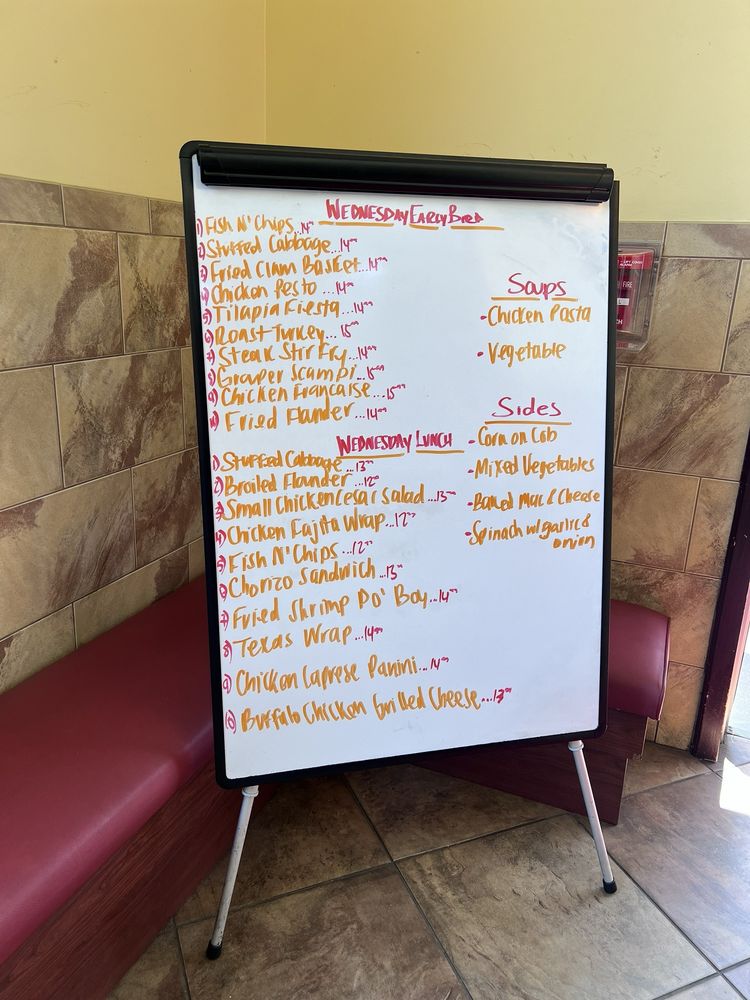 WEDNESDAY EARLY BIRD
1) Fish N' Chips...14
2) Stuffed Cabbage...14
3) Fried Clam Basket...14
4) Chicken Pesto...14
5) Tilapia Fiesta...14
6) Roast Turkey...15
7) Steak Stir Fry...14
8) Grouper Scampi...15
9) Chicken Francaise...15
10) Fried Flander...14
WEDNESDAY LUNCH
1) Stuffed Cabbage...13
2) Broiled Flander...12
3) Small Chicken Cesar Salad...13
4) Chicken Fajita Wrap...12
5) Fish N' Chips...12
6) Chorizo Sandwich...13
7) Fried Shrimp Po' Boy...14
8) Texas Wrap...14
9) Chicken Caprese Panini...14
10) Buffalo Chicken Grilled Cheese...13
Soups
- Chicken Pasta
- Vegetable
Sides
- Corn on Cob
- Mixed Vegetables
- Baked Mac & Cheese
- Spinach w/ garlic &
onion
FIRE